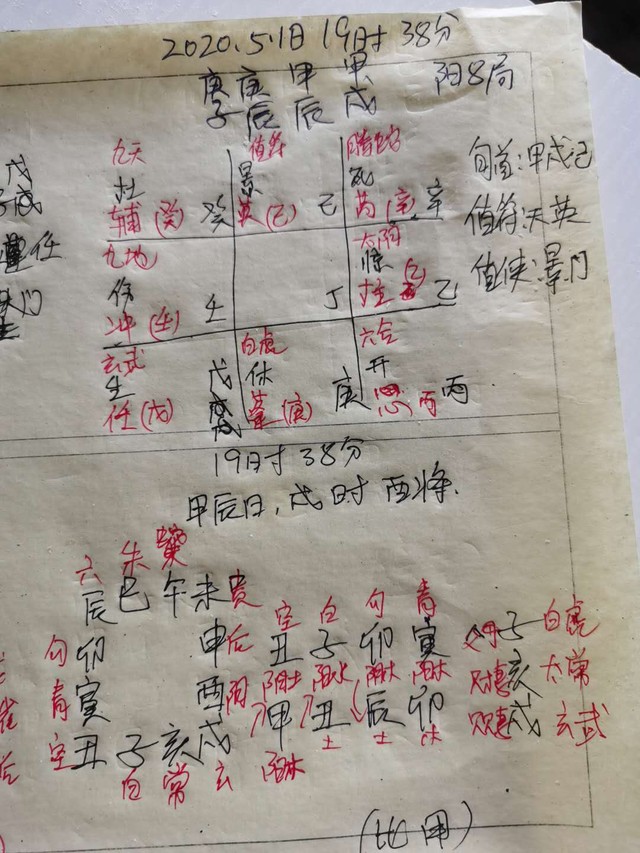 2020.5.1日 19时38分
庚 庚 甲 甲 阳8局
子 辰 辰 戌
九天 值符 螣蛇
杜 景 死
辅(癸) 癸 英(己) 己 芮(辛) 辛
旬首:甲戌己
值符:天英
值使:景门
九地 太阴
伤 惊
冲(壬) 壬 丁 柱 乙
玄武 白虎 六合
生 休 开
任(戊) 戊 (庚) 庚 丙 丙
19时38分
甲辰日,戌时 酉将.
六 朱
辰 巳 午 未 贵
空 白 勾 青
勾 卯 申 后 丑 子 卯 寅 父母 子 白虎
青 寅 酉 阴 甲 丑 辰 卯 亥 太常
空 丑 子 亥 戌 戌 玄武
土 土
白 常 玄
(比用)